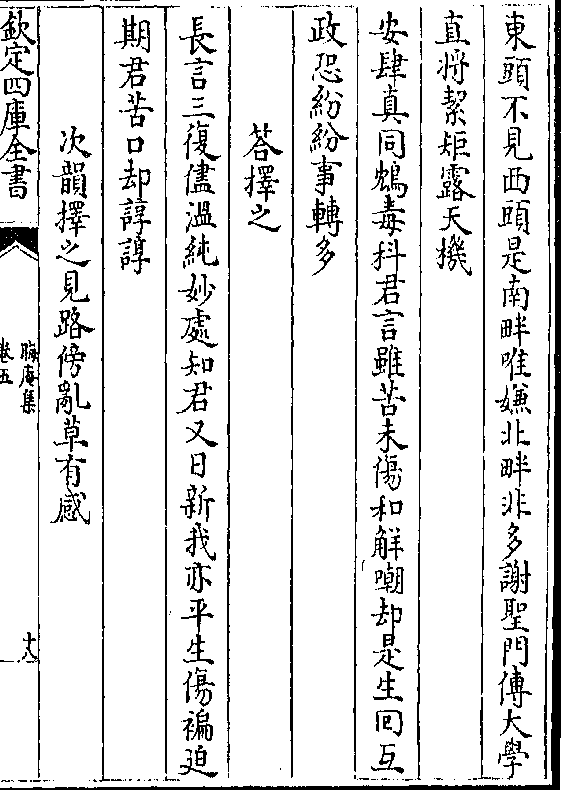 東頭不見西頭是南畔唯嫌北畔非多謝聖門傳大學
直將絜矩露天機
安肆真同鴆毒科君言雖苦未傷和解嘲却是生回互
政恐紛紛事轉多
答擇之
長言三復儘溫純妙處知君又日新我亦平生傷褊迫
期君苦口却諄諄
次韻擇之見路傍亂草有感
欽定四庫全書
晦庵集
卷五
十八